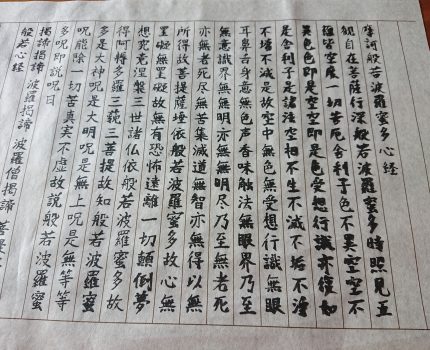 摩訶般若波羅蜜多心経
観自在菩薩行深般若波羅蜜多時照見五
蘊皆空度一切苦厄舎利子色不異空空不
異色色即是空空即是色受想行識亦復如
是舎利子是諸法空相不生不滅不垢不浄
不増不減是故空中無色無受想行識無眼
耳鼻舌身意無色声香味触法無眼界乃至
無意識界無無明亦無無明尽乃至無老死
亦無老死尽無苦集滅道無智亦無得以無
所得故菩提薩埵依般若波羅蜜多故心無
罣礙無罣礙故無有恐怖遠離一切顛倒夢
想究竟涅槃三世諸仏依般若波羅蜜多故
得阿耨多羅三藐三菩提故知般若波羅蜜
多是大神呪是大明呪是無上呪是無等等
呪能除一切苦真実不虚故説般若波羅蜜
多呪即説呪曰
揭諦揭諦 波羅揭諦 波羅僧揭諦 菩提
般若心経